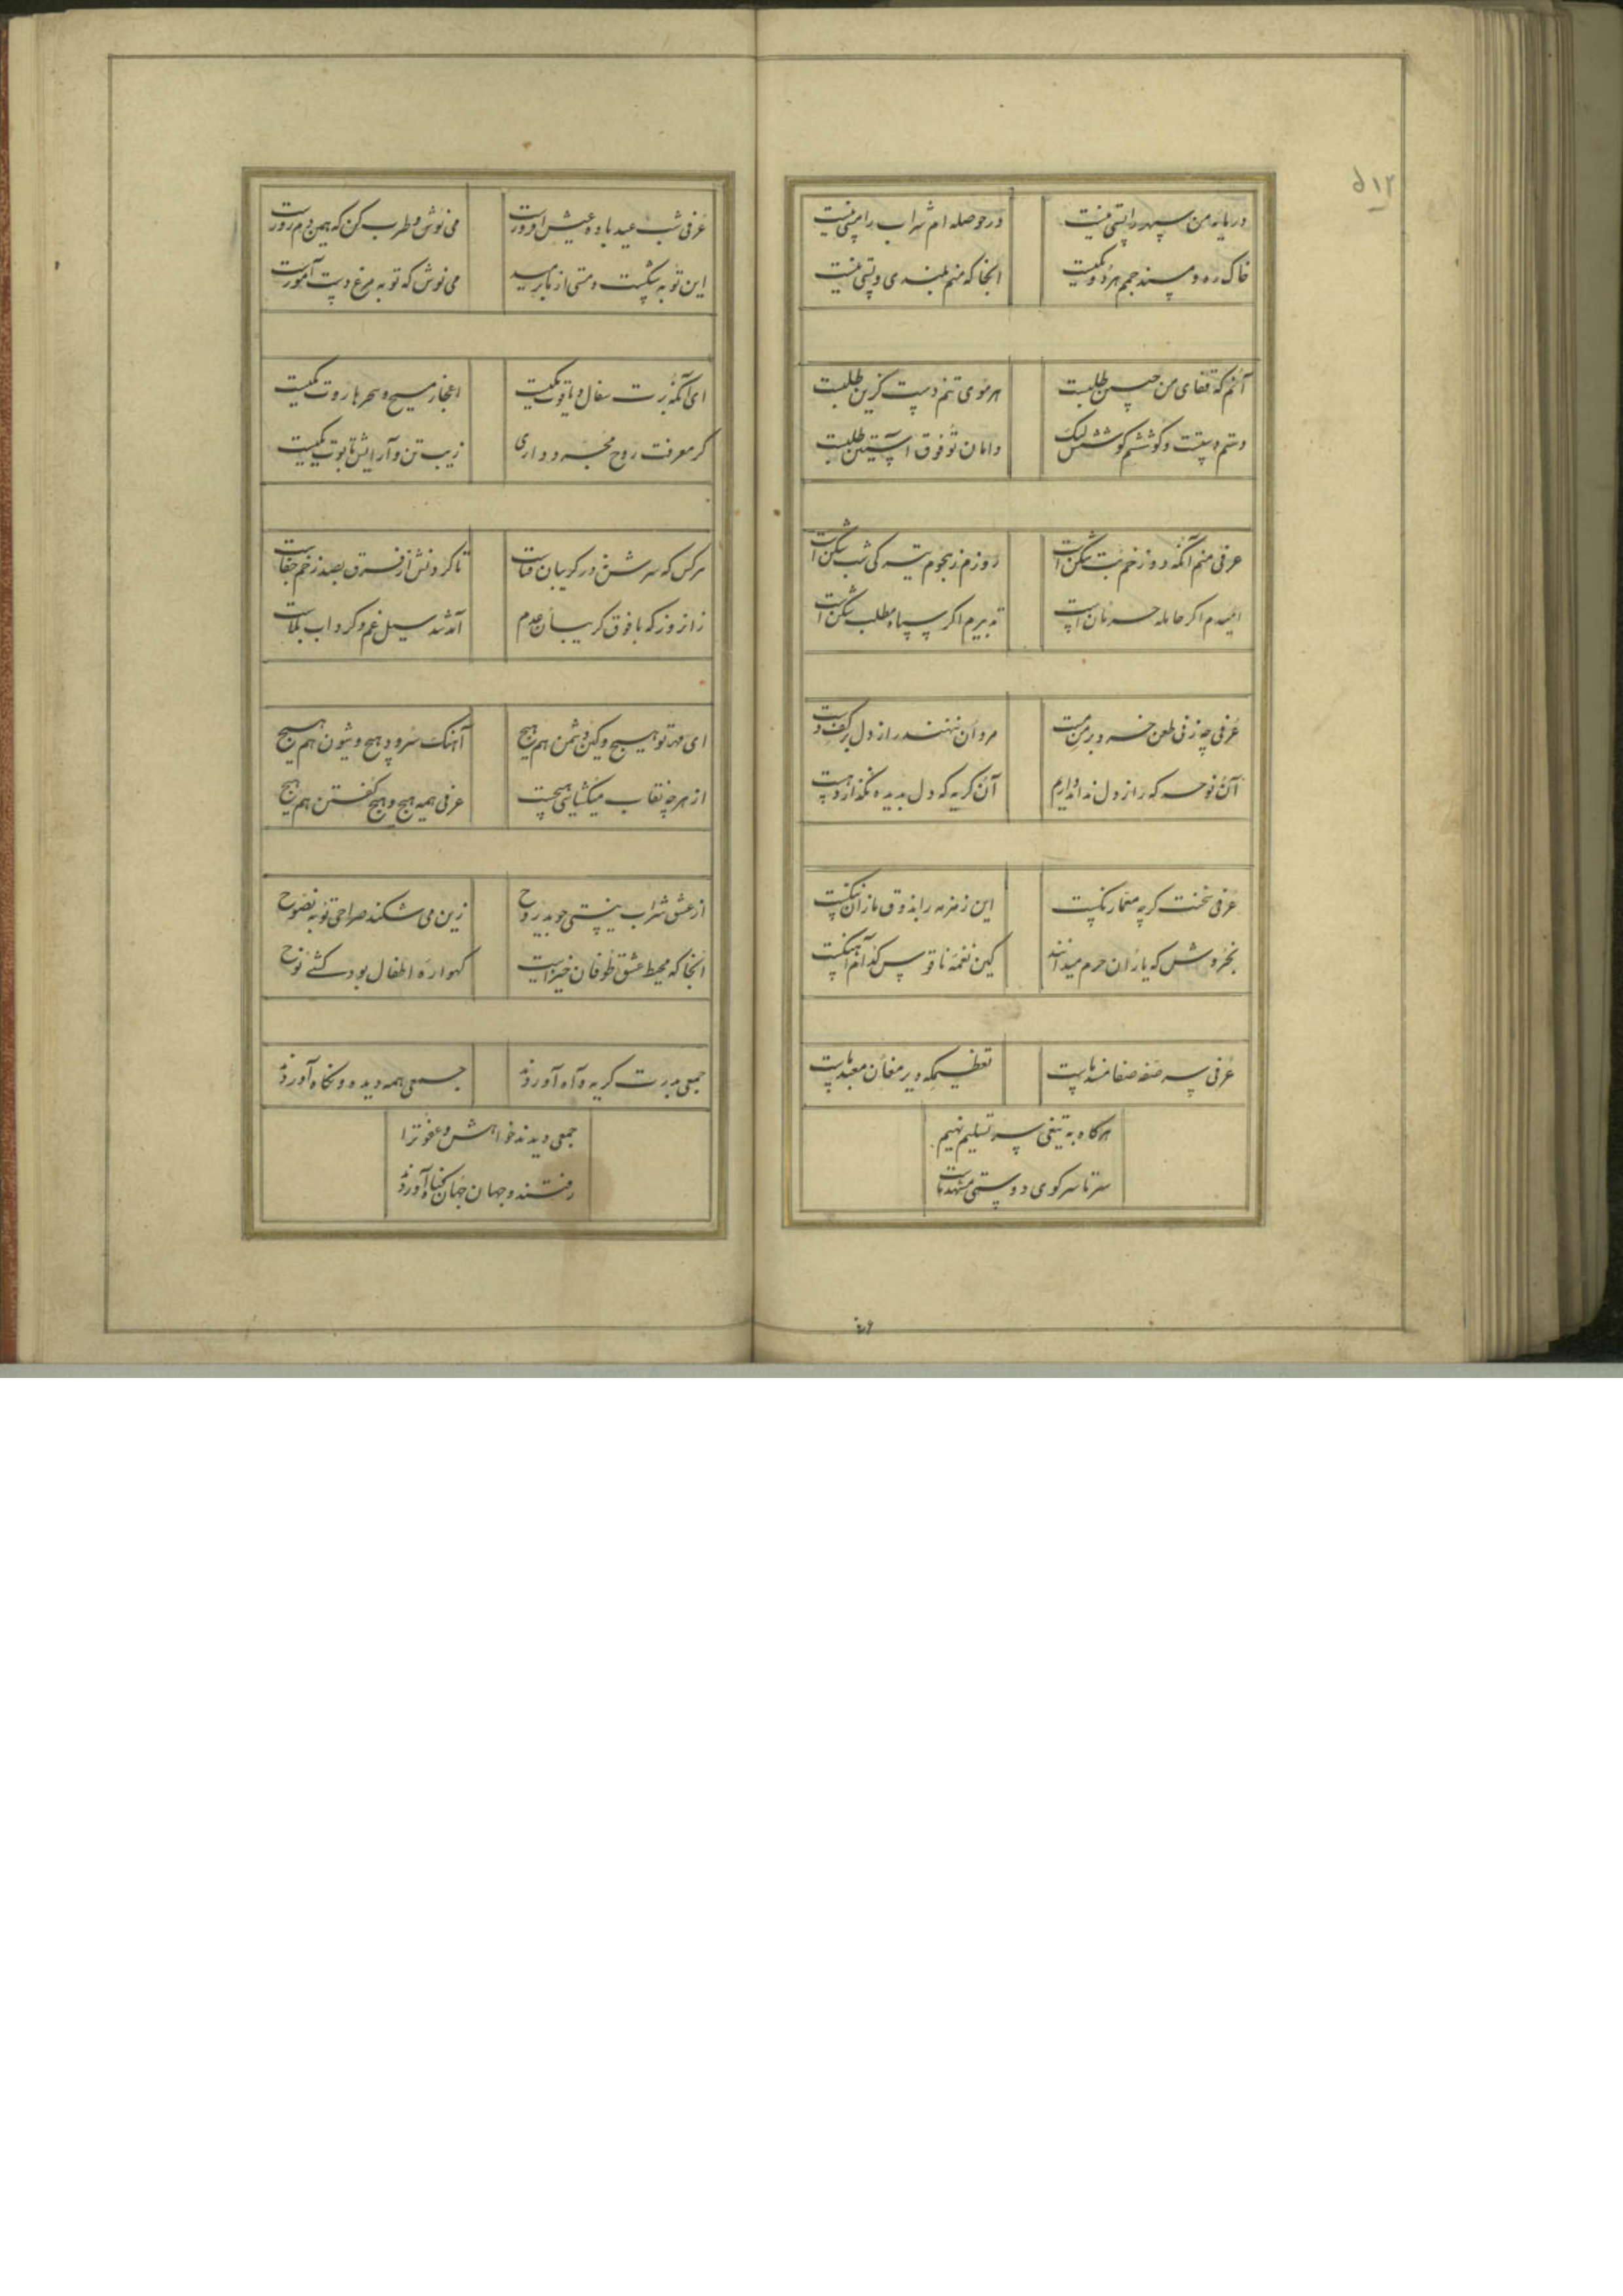 ۵۱۲
در پایه من سپهر را پستی نیست
در حوصله ام شراب را مستی نیست
خاک ره و مسند جمم هر دو یکیست
آنجا که منم بلندی و پستی نیست
آنم که قضای من چنین طلبست
هر موی تنم دست گزین طلبست
دستم و کوششم لیک
دامان تو فوق آستین طلبست
عرفی منم آنکه دوزخم تب شکن است
روزم ز نجوم تیره کی شب شکن است
امیدم اگر حامله حرمان است
تدبیرم اگر سپاه مطلب شکن است
عرفی چه زنی طعن خرد بر من مست
مردان ننهند راز دل بر کف دست
آن نوحه که راز دل نداند داریم
آن گریه که دل بدیده نگذارد هست
عرفی سخنت گرچه معما رنگست
این زمزمه را بذوق یاران ننگست
بخروش که یاران حرم میدانند
کین نغمه ناقوس کدام آهنگست
عرفی سر صفه صفا مسند ماست
تعظیمکه دیر مغان معبد ماست
هرگاه به تیغی سر تسلیم نهیم
سر تا سر کوی دوستی مشهد ماست
عرفی شب عید باده عیش افروزست
می نوش و طرب کن که همین دم روزست
این توبه شکست و مستی از ما برمید
می نوش که توبه مرغ دست آموزست
ای آنکه برت سفال و یاقوت یکیست
اعجاز مسیح و سحر هاروت یکیست
گر معرفت روح مجرد داری
زیب تن و آرایش تابوت یکیست
هرکس که سرشتن در گریبان فناست
تا گردنش از فرق بصد زخم جفاست
زان روز که با فوق گریبان عدم
آمد شد سیل غم و گرداب بلاست
ای مهر تو هیچ و کین دشمن هم هیچ
آهنگ سرود هیچ و شیون هم هیچ
از هرچه نقاب میگشایی هیچست
عرفی همه هیچ و هیچ گفتن هم هیچ
از عشق شراب نیستی جوید روح
زین می شکند صراحی توبه نصوح
آنجا که محیط عشق طوفان خیزاست
گهواره اطفال بود کشتی نوح
جمعی بدرت گریه و آه آوردند
جمعی همه دیده و نگاه آوردند
جمعی دیدند خواهش عفو ترا
رفتند و جهان جهان گناه آوردند